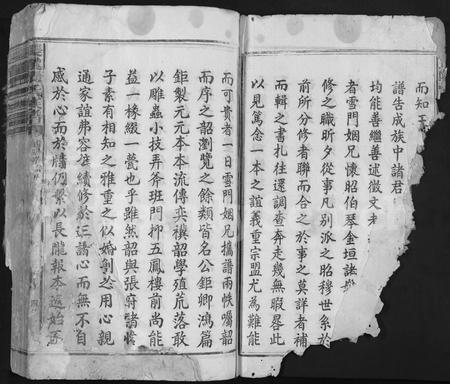 而知
譜告成族中諸君
均能善繼善述徵文考
者雪門姻兄懷昭伯琴金垣詠
修之職昕夕從事凡別派之昭穆世系於
前所分修者聯而合之於事之莫詳者補
而輯之書札往還調查奔走幾無暇晷此
以見篤念一本之誼義重宗盟尤為難能
而可貴者一日雪門姻兄攜譜兩帙囑韶
而序之韶瀏覽之餘類皆名公鉅卿鴻篇
鉅製元元本本流傳奕禩韶學殖荒落敢
以雕蟲小技弄斧班門抑五鳳樓前尚能
益一椽綴一甍也乎雖然韶與張府諸
子素有相知之雅重之以婚制忿用心親
通家誼弗容辭續修於三請心而無不自
感於心而於牘仍繫以長隴報本追始